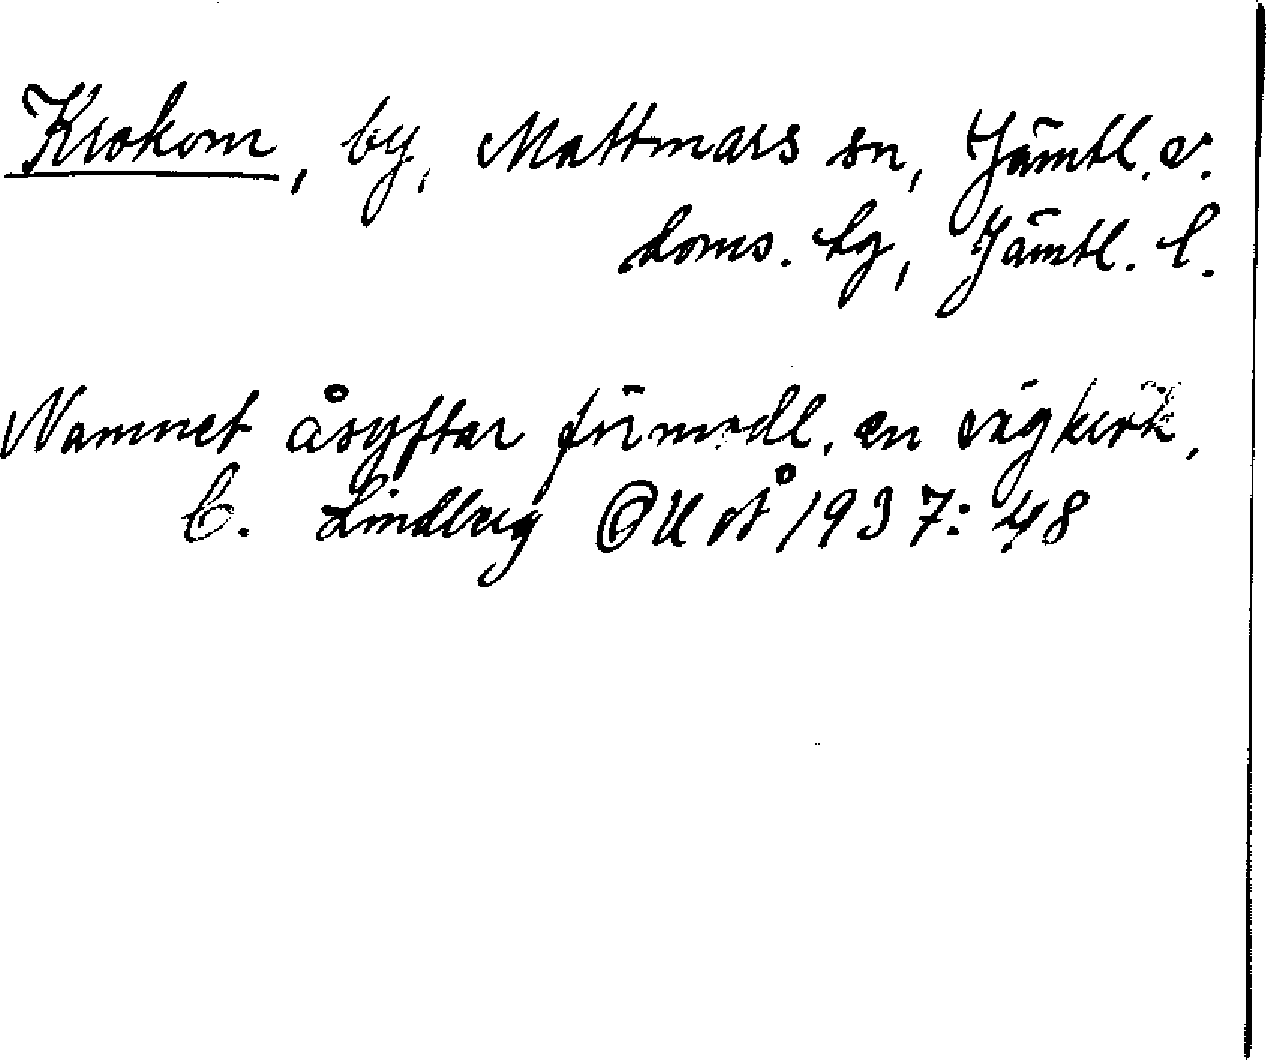 Krokom, by, Mattmars sn, Jämtl. v.
doms. hg, Jämtl. l.
Namnet åsyftar förmodl. en vägkrök,
C. Lindberg OUÅ 1937: 48